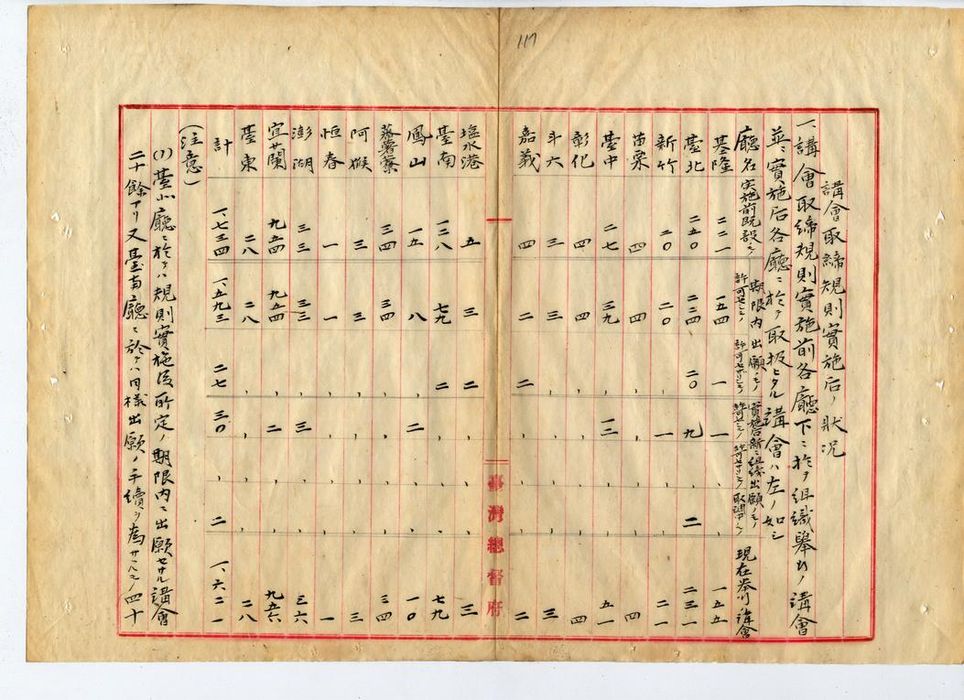 117
講會取締規則實施后ノ狀况
一、講會取締規則實施前各廳下ニ於テ組織擧行ノ講會
並ニ實施后各廳ニ於テ取扱ヒタル講會ハ左ノ如シ
廳名 実施前既設ノモノ 期限内出願ノモノ 許可セシモノ 許可セザリシモノ 實施后新ニ組織出願ノモノ 許可セシモノ 許可セザリシモノ 取調中ノモノ 現在擧行講會
基隆 二二一 一五四 一 一 、 、 一五五
臺北 二五〇 二二四 二〇 九 、 二 二三一
新竹 二〇 二〇 、 一 、 、 二一
苗栗 四 四 、 、 、 、 四
臺中 二七 三九 、 一二 、 、 五一
彰化 四 四 、 、 、 、 四
斗六 三 三 、 、 、 、 三
嘉義 四 二 二 、 、 、 二
塩水港 五 三 二 、 、 、 三
臺南 一二八 七九 二 、 、 、 七九
鳳山 一五 八 、 二 、 、 一〇
蕃薯藔 三四 三四 、 、 、 、 三四
阿猴 三 三 、 、 、 、 三
恒春 一 一 、 、 、 、 一
澎湖 三三 三三 、 三 、 、 三六
宜蘭 九五四 九五四 、 二 、 、 九五六
臺東 二八 二八 、 、 、 、 二八
計 一、七三四 一、五九三 二七 三〇 、 二 一、六二一
(注意)
(1) 臺北廳ニ於テハ規則實施後所定ノ期限内ニ出願セザル講會
二十餘アリ又臺南廳ニ於テハ同様出願ノ手續ヲ為サヾルモノ四十
臺灣總督府